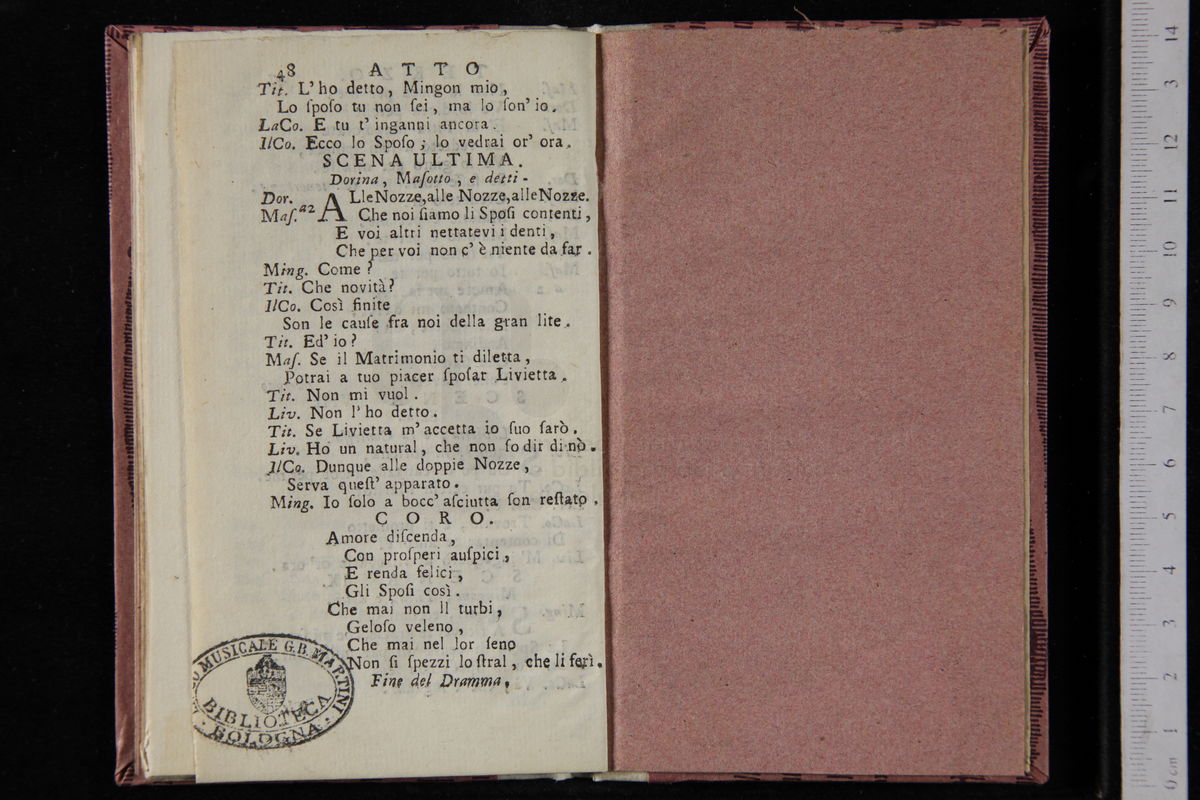 48 ATTO
Tit. L' ho detto, Mingon mio,
Lo ſpoſo tu non ſei, ma lo ſon' io.
LaCo. E tu t' inganni ancora.
IlCo. Ecco lo Spoſo; lo vedrai or' ora.
SCENA ULTIMA.
Dorina, Maſotto, e detti.
Dor.
Maſ. a2
ALle Nozze, alle Nozze, alle Nozze.
Che noi ſiamo li Spoſi contenti,
E voi altri nettatevi i denti,
Che per voi non c' è niente da far.
Ming. Come?
Tit. Che novità?
IlCo. Così finite
Son le cauſe fra noi della gran lite.
Tit. Ed' io?
Maſ. Se il Matrimonio ti diletta,
Potrai a tuo piacer ſpoſar Livietta.
Tit. Non mi vuol.
Liv. Non l' ho detto.
Tit. Se Livietta m' accetta io ſuo ſarò.
Liv. Ho un natural, che non ſo dir di nò.
IlCo. Dunque alle doppie Nozze,
Serva queſt' apparato.
Ming. Io ſolo a bocc' aſciutta ſon reſtato.
CORO.
Amore diſcenda,
Con proſperi auſpici,
E renda felici,
Gli Spoſi così.
Che mai non ll turbi,
Geloſo veleno,
Che mai nel lor ſeno
Non ſi ſpezzi lo ſtral, che li ferì.
Fine del Dramma.
MUSICALE G.B. MARTINI
BIBLIOTECA
BOLOGNA
0 cm 1 2 3 4 5 6 7 8 9 10 11 12 13 14